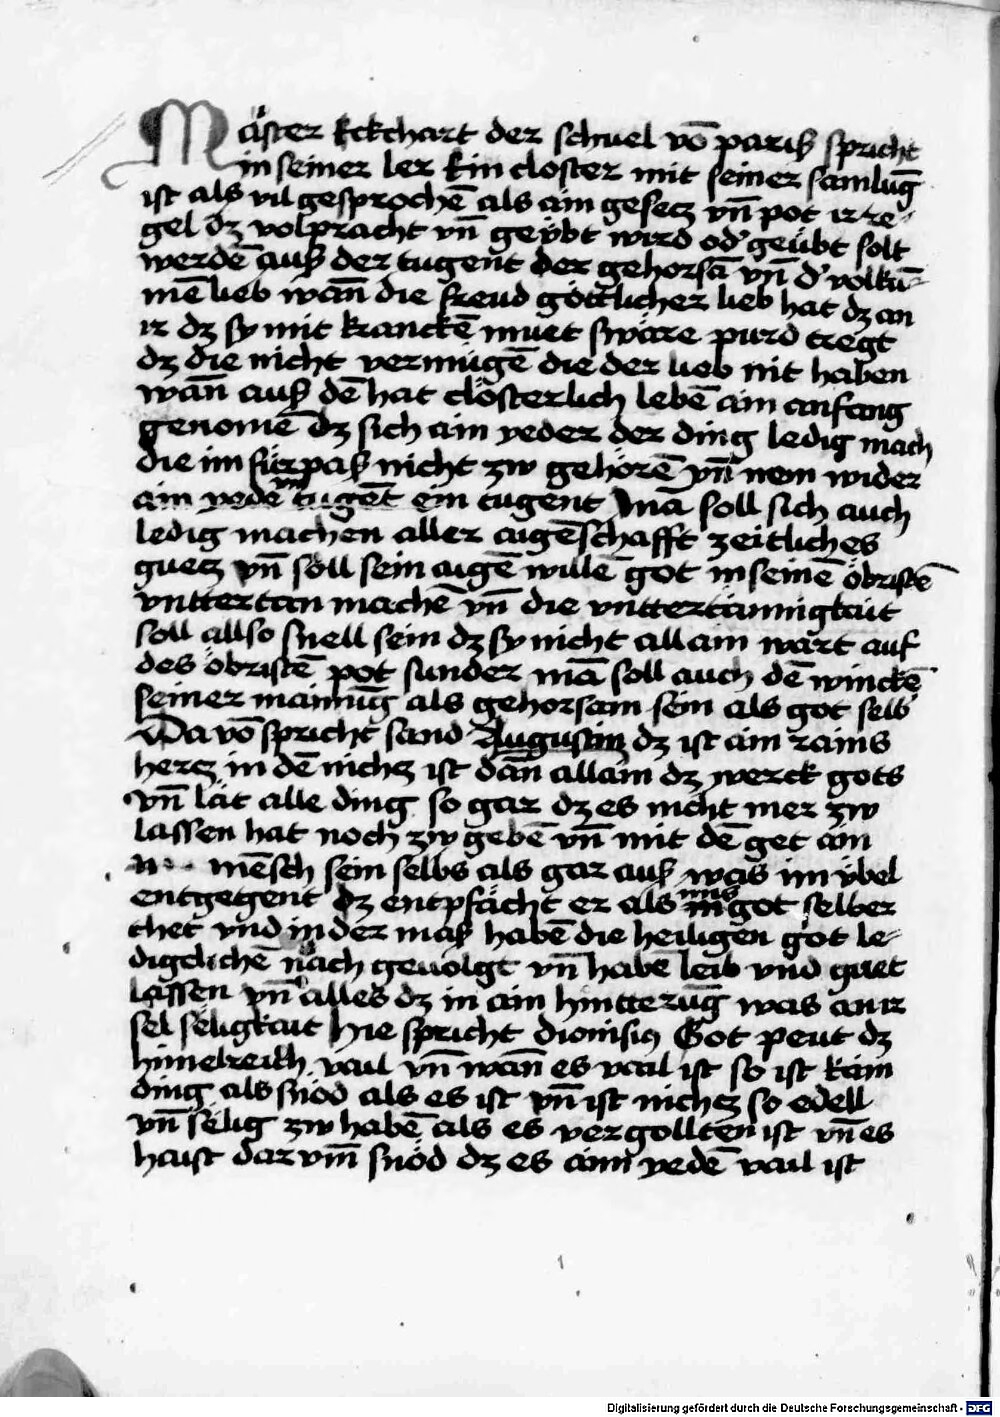 Maister Eckchart der schuel vō pariß spricht
in seiner ler Ein closter mit seiner samlūg
ist als vil gesprochē als ain gesecz vn̄ pot ir re-
gel dz volpracht vn̄ geÿbt wird od' geübt solt
werdē auß der tugent der gehorsā vn̄ d' volkū-
mē lieb wān die freud göttlicher lieb hat dz an
ir dz sy mit kranckē muet swäre purd tregt
dz die nicht vermügē die der lieb nit haben
wān auß dē hat clösterlich lebē ain anfang
genomē dz sich ain yeder der ding ledig mach
die im fürpaß nicht zw gehörē vn̄ nem wider
ain yedē vntugēt ein tugent Mā soll sich auch
ledig machen aller aigēschafft zeitliches
guecz vn̄ soll sein aigē willē got in seinē öbristē
vnttertan machē vn̄ die vnttertännigkait
soll allso snell sein dz sy nicht allain wart auf
des öbristē pot sunder mā soll auch dē winckē
seiner mainūg als gehorsam sein als got selb
Da vō spricht sand Augustin dz ist ain rains
hercz in dē nichcz ist dān allain dz werck gots
vn̄ lät alle ding so gar dz es nicht mer zw
lassen hat noch zw gebē vn̄ mit dē get ain
mēsch sein selbs als gar auß was im ÿbel
entgegent dz entpfächt er als ims got selber
thet vnd in der maß habē die heiligen got le-
digclichē nach geuolgt vn̄ habē leib vnd guet
lassen vn̄ alles dz in ain hintterūg was an ir
sel seligkait Hie spricht dionisiꝰ Got peut dz
himelreich vail vn̄ wān es vail ist so ist kain
ding als snöd als es ist vn̄ ist nichcz so edell
vn̄ sëlig zw habē als es vergollten ist vn̄ es
haist dar vm̄ snöd dz es aim yedē vail ist
Digitalisierung gefördert durch die Deutsche Forschungsgemeinschaft - DFG